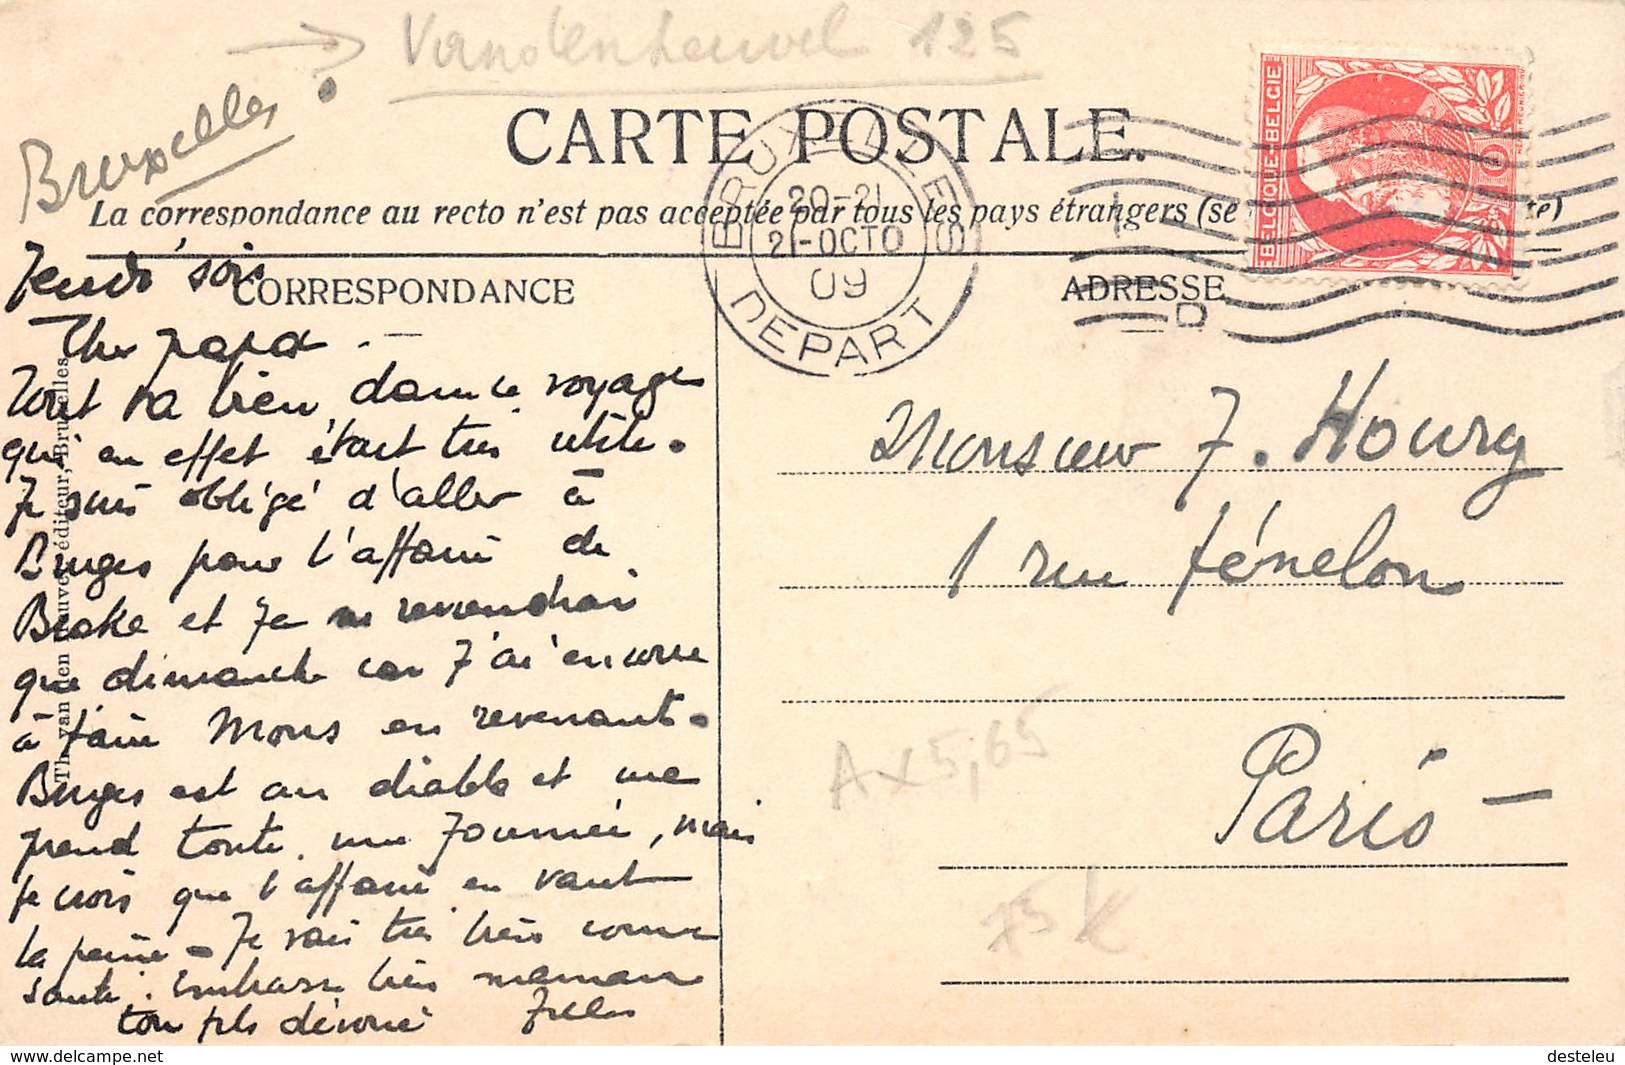 Vandenheuvel 125
Bruxelles
CARTE POSTALE.
La correspondance au recto n'est pas acceptée par tous les pays étrangers (se
te)
BRUXELLES
20-21
21-OCTO
09
DEPART
BELGIQUE BELGIE
10
CORRESPONDANCE
ADRESSE
D
Jeudi soir
Cher papa. —
Tout va bien dans ce voyage
qui en effet était très utile.
Je suis obligé d'aller à
Bruges pour l'affaire de
Broke et je ne reviendrai
que dimanche car j'ai encore
à faire Mons en revenant.
Bruges est au diable et me
prend toute une journée, mais
je crois que l'affaire en vaut
la peine - Je vais très bien comme
santé. Embrasse bien maman
ton fils dévoué Jules
Th. van den Heuvel, éditeur, Bruxelles
Monsieur J. Hourg
1 rue Fénelon
Paris —
A x 5,65
75 k
desteleu
www.delcampe.net